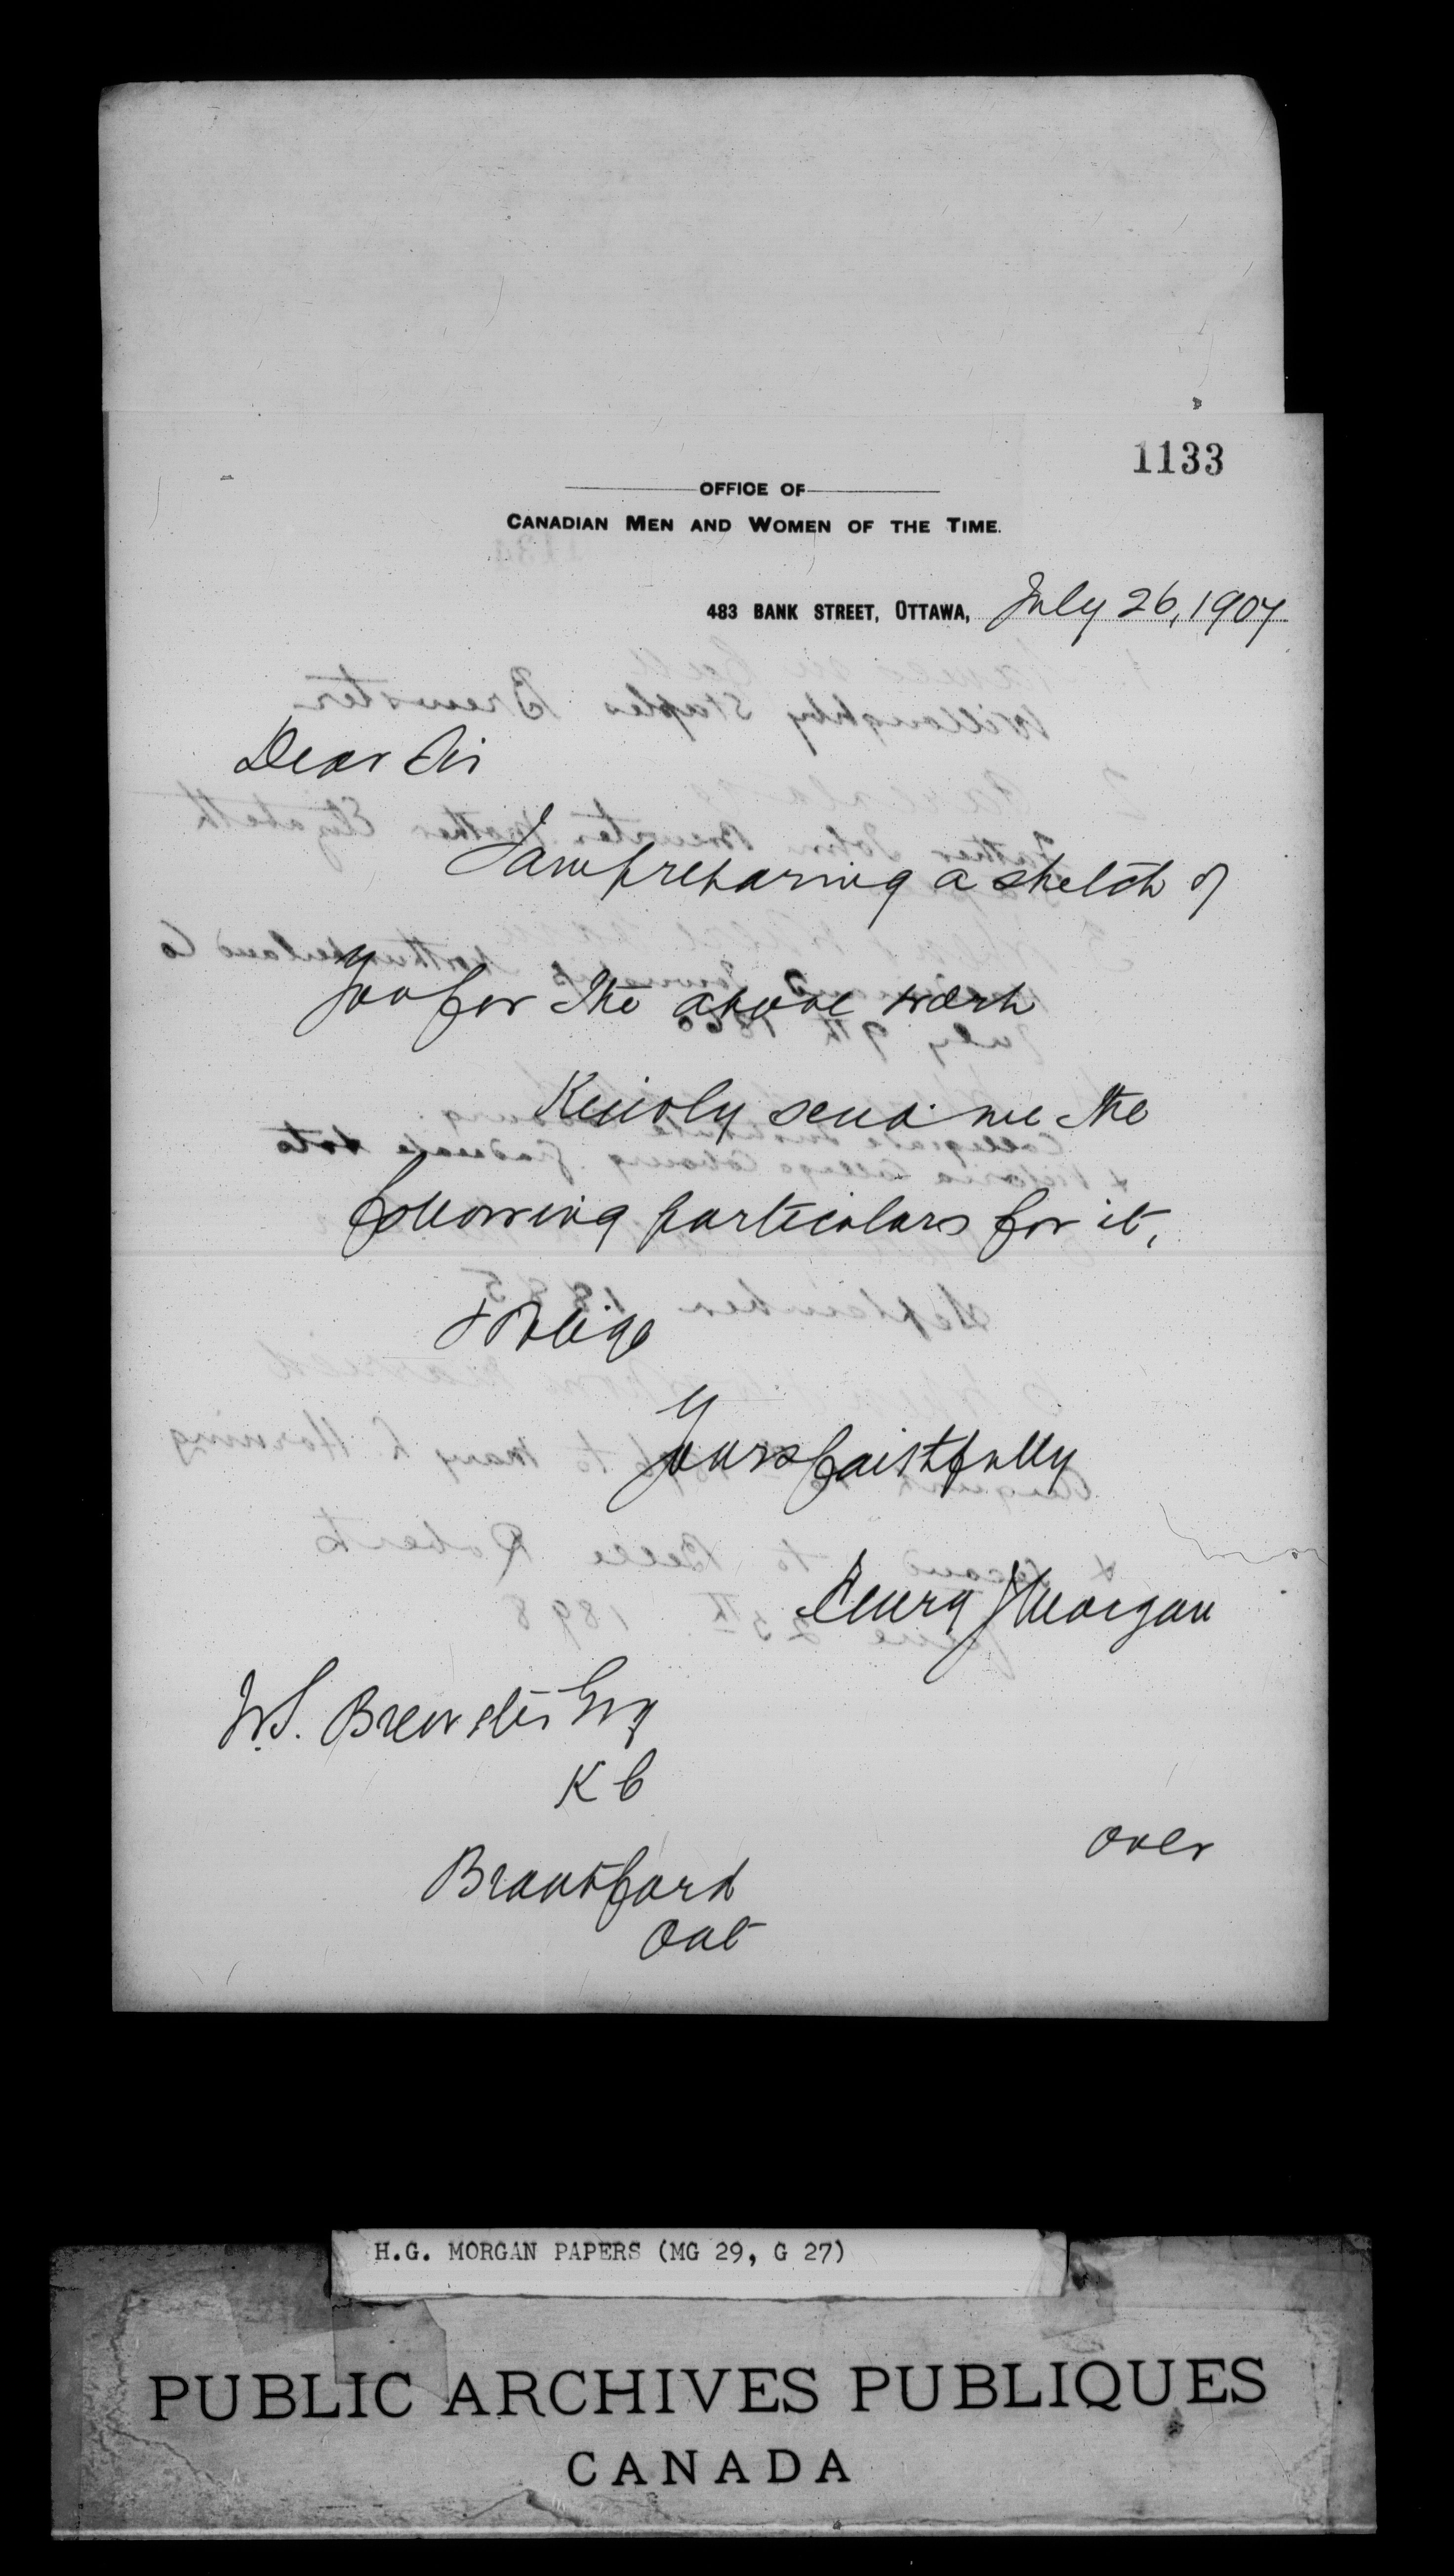 1133
OFFICE OF
CANADIAN MEN AND WOMEN OF THE TIME.
483 BANK STREET, OTTAWA, July 26, 1907
Dear Sir
I am preparing a sketch of
you for the above work
Kindly send me the
following particulars for it,
& oblige
Yours faithfully
Henry J Morgan
W.S. Brewster Esq
K C
Brantford
Ont
over
H.G. MORGAN PAPERS (MG 29, G 27)
PUBLIC ARCHIVES PUBLIQUES
CANADA